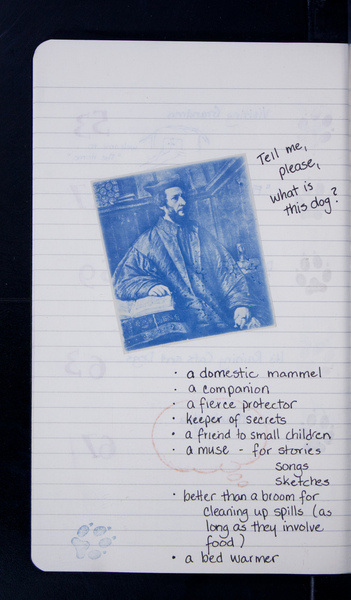 Tell me,
please,
what is
this dog?
· a domestic mammel
· a companion
· a fierce protector
· keeper of secrets
· a friend to small children
· a muse - for stories
songs
sketches
· better than a broom for
cleaning up spills (as
long as they involve
food)
· a bed warmer